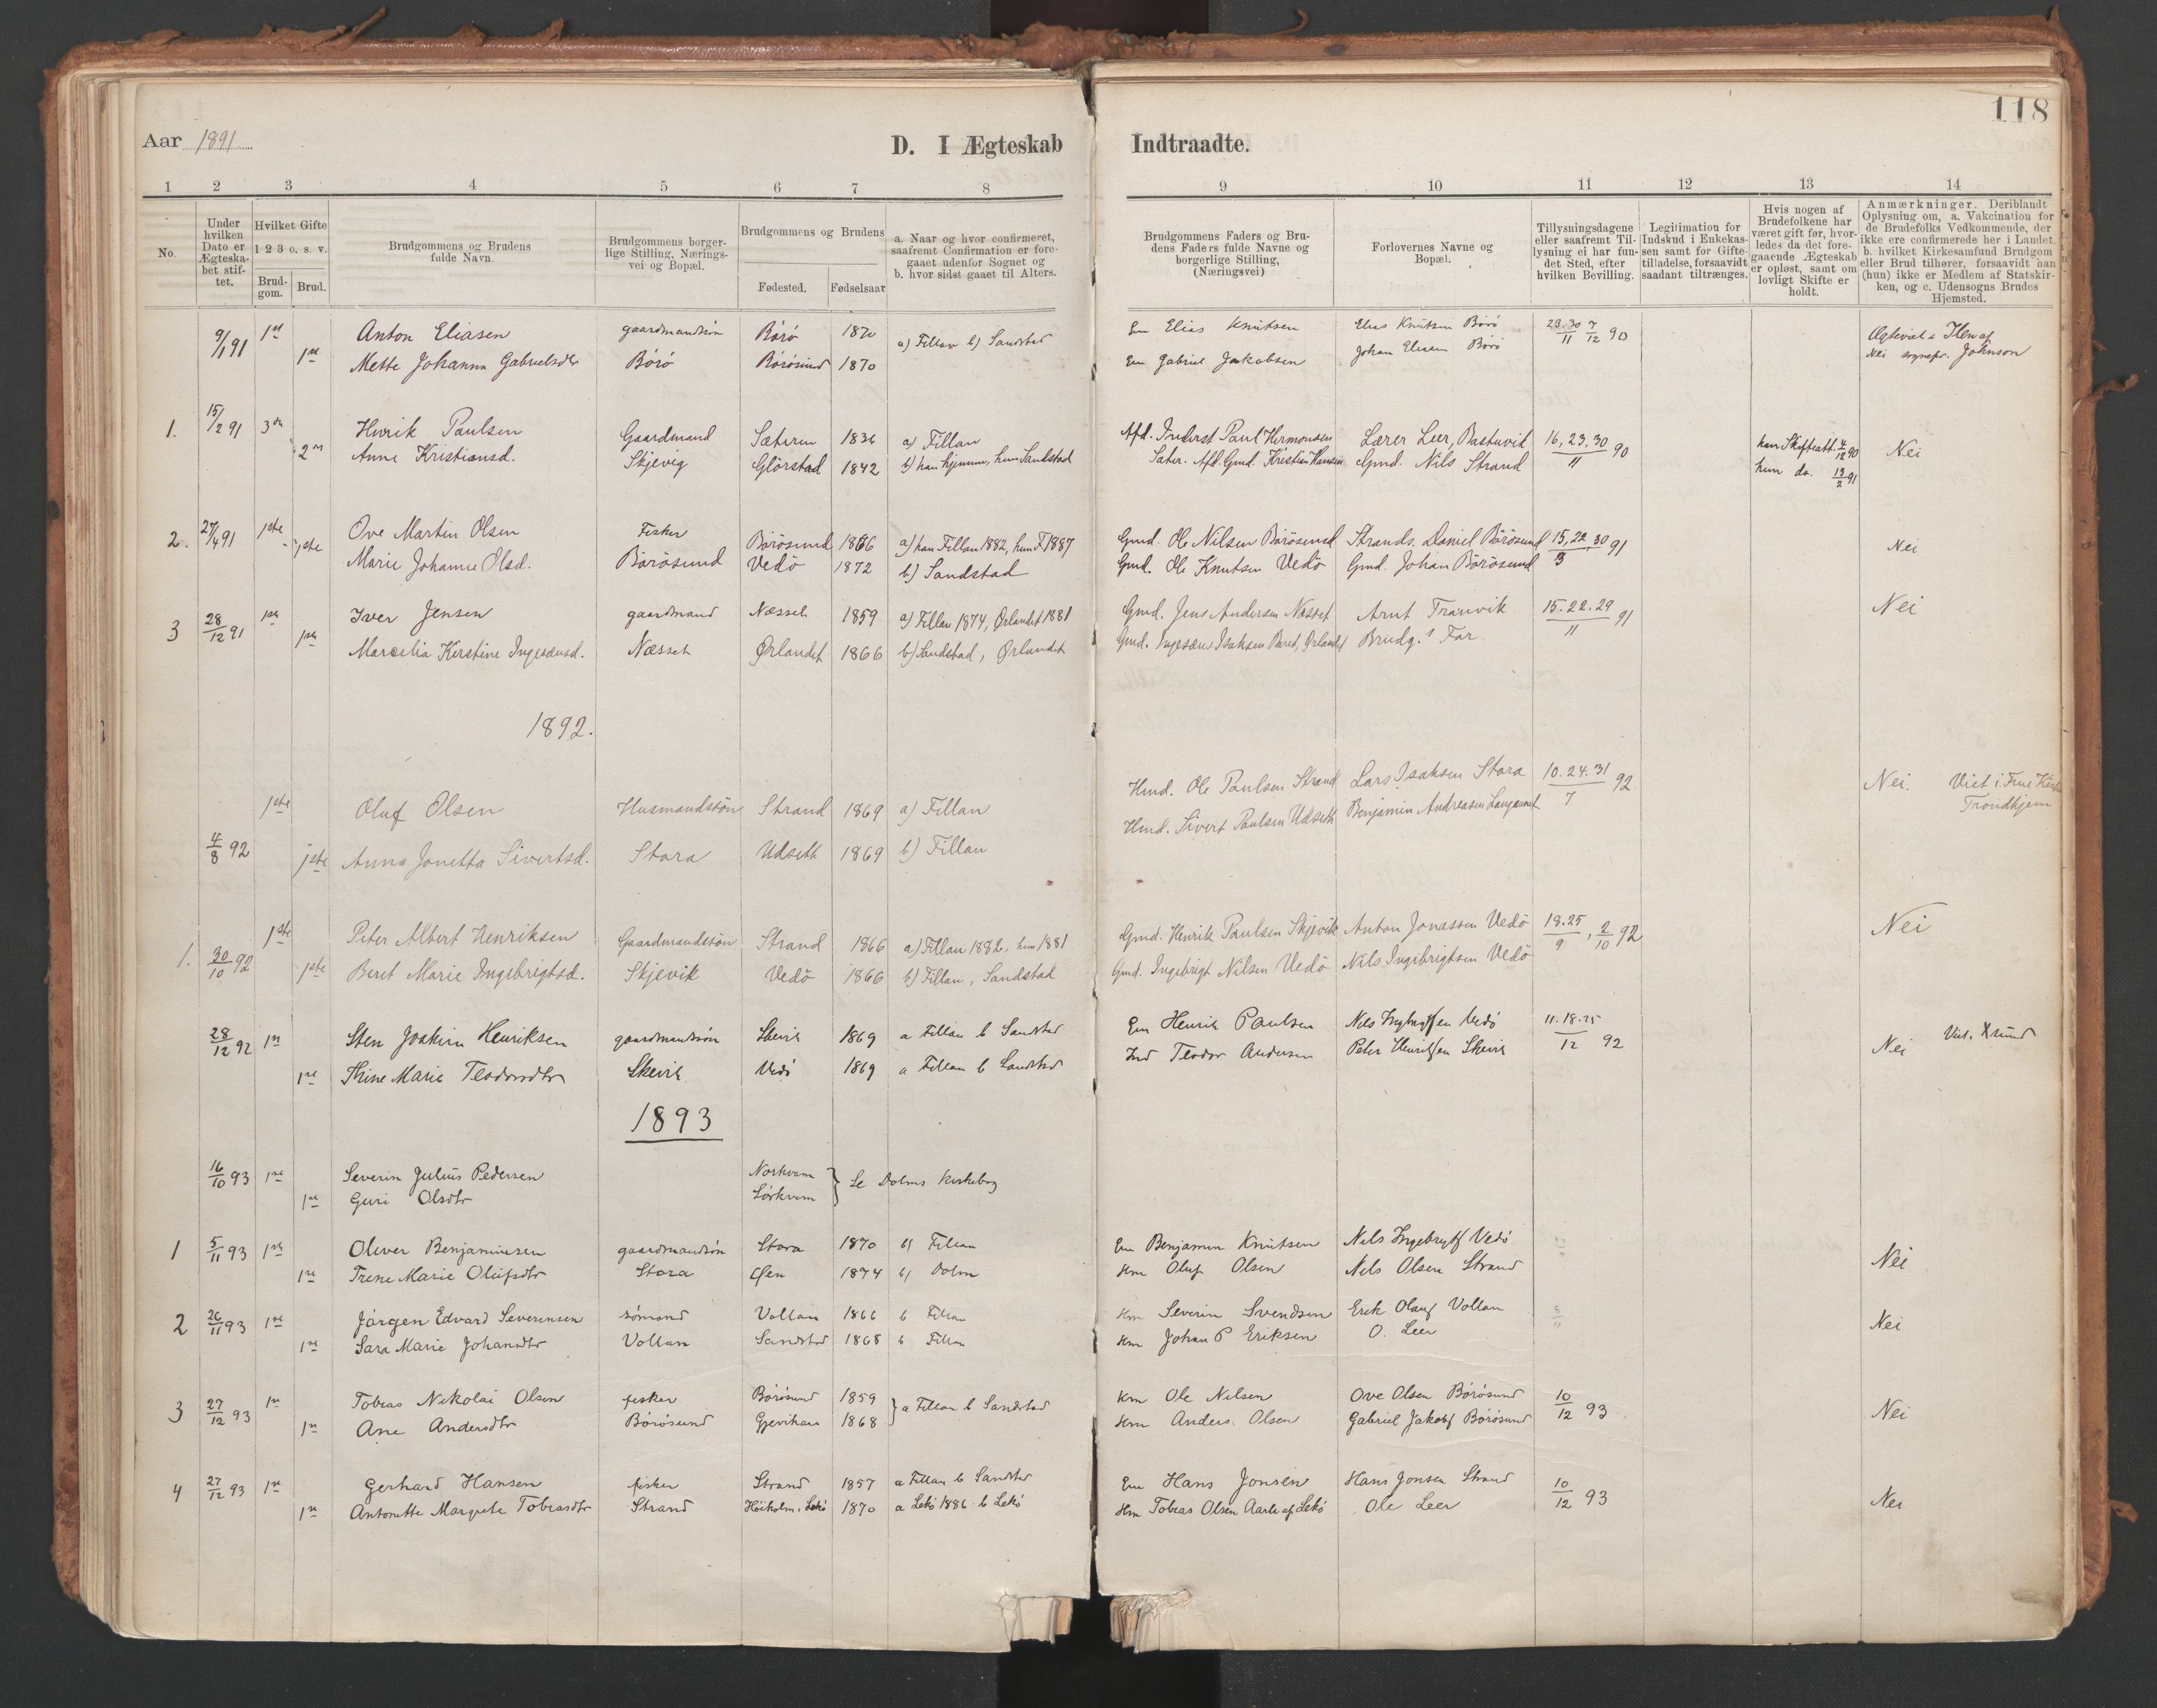 118
Aar 1891
D. I Ægteskab Indtraadte.
1 2 3 4 5 6 7 8 9 10 11 12 13 14
No.
Under hvilken Dato er Ægteska-bet stif-tet.
Hvilket Gifte 1 2 3 o. s. v.
Brud-gom. Brud.
Brudgommens og Brudens fulde Navn.
Brudgommens borger-lige Stilling, Nærings-vei og Bopæl.
Brudgommens og Brudens
Fødested. Fødselsaar
a. Naar og hvor confirmeret, saafremt Confirmation er fore-gaaet udenfor Sognet og b. hvor sidst gaaet til Alters.
Brudgommens Faders og Bru-dens Faders fulde Navn og borgerlige Stilling, (Næringsvei)
Forlovernes Navne og Bopæl.
Tillysningsdagene eller saafremt Til-lysning ei har fun-det Sted, efter hvilken Bevilling.
Legitimation for Indskud i Enkekas-sen samt for Gifte-tilladelse, forsaavidt saadant tiltrænges.
Hvis nogen af Brudefolkene har været gift før, hvor-ledes da det fore-gaaende Ægteskab er opløst, samt om lovligt Skifte er holdt.
Anmærkninger. Deriblandt Oplysning om, a. Vakcination for de Brudefolks Vedkommende, der ikke ere confirmerede her i Landet. b. hvilket Kirkesamfund Brudgom eller Brud tilhører, forsaavidt han (hun) ikke er Medlem af Statskir-ken, og c. Udensogns Brudes Hjemsted.
9/1 91 1ste Anton Eliasen gaardmandsön Börö 1870 a) Fillan b) Sandstad Em Elias Knutsen Elias Knutsen Börö 23.30/11 7/12 90
1ste Mette Johanna Gabrielsdtr Börö Börösund 1870 Em Gabriel Jakobsen Johan Eliasen Börö Nei sognepr. Johnson
1. 15/2 91 3die Henrik Paulsen Gaardmand Sæteren 1836 a) Fillan Afd. Inderst Paul Hermonsen Lærer Leer, Bastuvik 16, 23, 30/11 90 han Skifteatt. 4/12 90 Nei
2den Anne Kristiansd. Skjevig Glörstad 1842 b) han hjemme, hun Sandstad Sæter. Afd. Gmd. Kristian Hansen Gmd. Nils Strand hun do. 13/2 91
2. 27/4 91 1ste Ove Martin Olsen Fisker Börösund 1866 a) han Fillan 1882, hun F 1887 Gmd. Ole Nilsen Börösund Strands. Daniel Börösund 15, 22, 30/3 91 Nei
1ste Marie Johanne Olsd. Börösund Vedö 1872 b) Sandstad Gmd. Ole Knutsen Vedö Gmd. Johan Börösund
3 28/12 91 1ste Iver Jensen gaardmand Næsset 1859 a) Fillan 1874, Ørlandet 1881 Gmd. Jens Andersen Næsset Arnt Tranvik 15.22.29/11 91 Nei
1ste Marcelia Kirstine Ingesensd. Næsset Ørlandet 1866 b) Sandstad, Ørlandet Brudg.s Far
1892.
1ste Oluf Olsen Husmandsön Strand 1869 a) Fillan Hmd. Ole Paulsen Strand Lars Isaksen Stora 10.24.31/7 92 Nei. Viet i Frue Kirke Trondhjem
4/8 92 1ste Anna Jonetta Sivertsd. Stora Udseth 1869 b) Fillan Hmd. Sivert Paulsen Udseth Benjamin Andreasen
1. 30/10 92 1ste Peter Albert Henriksen Gaardmandsön Strand 1866 a) Fillan 1882, hun 1881 Gmd. Henrik Paulsen Skjevik Anton Jonassen Vedö 18.25/9, 2/10 92 Nei
1ste Beret Marie Ingebrigtsd. Skjevik Vedö 1866 b) Fillan, Sandstad Gmd. Ingebrigt Nilsen Vedö Nils Ingebrigtsen Vedö
28/12 92 1ste Sten Joakim Henriksen gaardmandsön Skevik 1869 a Fillan b Sandstad Em Henrik Paulsen Vedö 11.18.25/12 92 Nei Viet. Xsund
1ste Stine Marie Teodorsdtr Skevik Vedö 1869 a Fillan b Sandstad Ind Teodor Andersen Peter Henriksen Skevik
1893
16/10 93 1ste Severin Julius Pedersen Norkvam } Se Dolms kirkebog
1ste Guri Olsdtr Sörkvam
1 5/11 93 1ste Oliver Benjaminsen gaardmandsön Stora 1870 b) Fillan Em Benjamin Knutsen Nils Ingebrigts Vedö Nei
1ste Trene Marie Olufsdtr Stora Ofen 1874 b) Dolm Hm Oluf Olsen Nils Olsen Strand
2 26/11 93 1ste Jörgen Edvard Severinsen sömand Vollan 1866 b Fillan Hm Severin Svendsen Erik Olauf Vollan Nei
1ste Sara Marie Johansdtr Vollan Sandstad 1868 b Fillan Hm Johan P Eriksen O. Leer
3 27/12 93 1ste Tobias Nikolai Olsen fisker Börösund 1859 } a Fillan b Sandstad Hm Ole Nilsen Ove Olsen Börösund 10/12 93 Nei
1ste Ane Andersdtr Börösund 1868 Hm Anders Olsen Gabriel Jakobs Börösund
4 27/12 93 1ste Gerhard Hansen fisker Strand 1857 a Fillan b Sandstad Em Hans Jonsen Hans Jonsen Strand 10/12 93 Nei
1ste Antonette Margrete Tobiasdtr Strand Höiholm i Lekö 1870 a Lekö 1886 b Lekö Hm Tobias Olsen Ole Leer